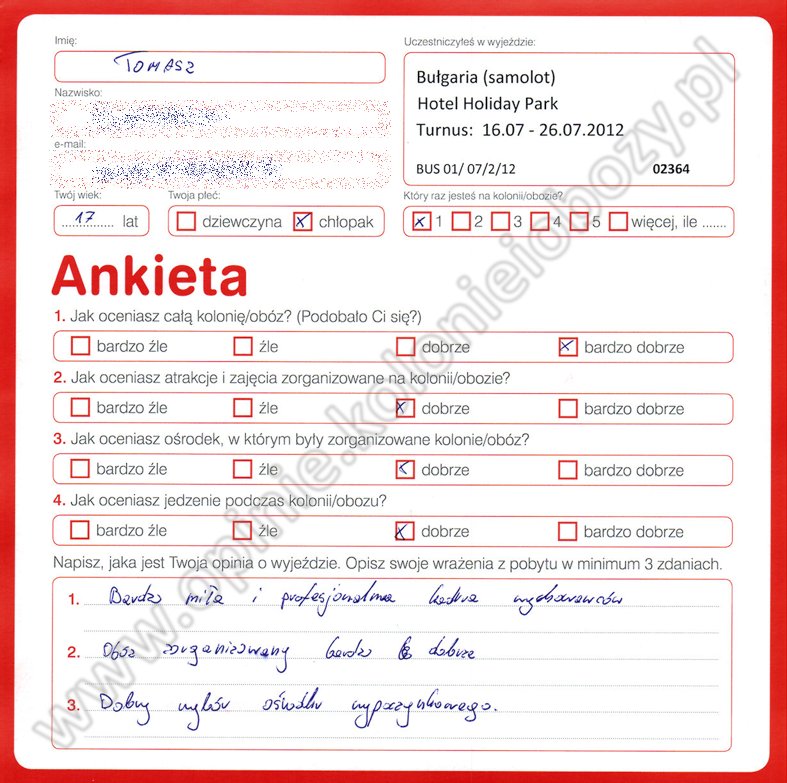 Imię:
TOMASZ
Nazwisko:
e-mail:
Twój wiek:
17 lat
Twoja płeć:
dziewczyna x chłopak
Uczestniczyłeś w wyjeździe:
Bułgaria (samolot)
Hotel Holiday Park
Turnus: 16.07 - 26.07.2012
BUS 01/ 07/2/12 02364
Który raz jesteś na kolonii/obozie?
x 1 2 3 4 5 więcej, ile .......
Ankieta
1. Jak oceniasz całą kolonię/obóz? (Podobało Ci się?)
bardzo źle źle dobrze x bardzo dobrze
2. Jak oceniasz atrakcje i zajęcia zorganizowane na kolonii/obozie?
bardzo źle źle x dobrze bardzo dobrze
3. Jak oceniasz ośrodek, w którym były zorganizowane kolonie/obóz?
bardzo źle źle x dobrze bardzo dobrze
4. Jak oceniasz jedzenie podczas kolonii/obozu?
bardzo źle źle x dobrze bardzo dobrze
Napisz, jaka jest Twoja opinia o wyjeździe. Opisz swoje wrażenia z pobytu w minimum 3 zdaniach.
1. Bardzo miła i profesjonalna kadra wychowawców
2. Obóz zorganizowany bardzo dobrze
3. Dobry wybór ośrodka wypoczynkowego.
www.opinie.kolonieiobozy.pl